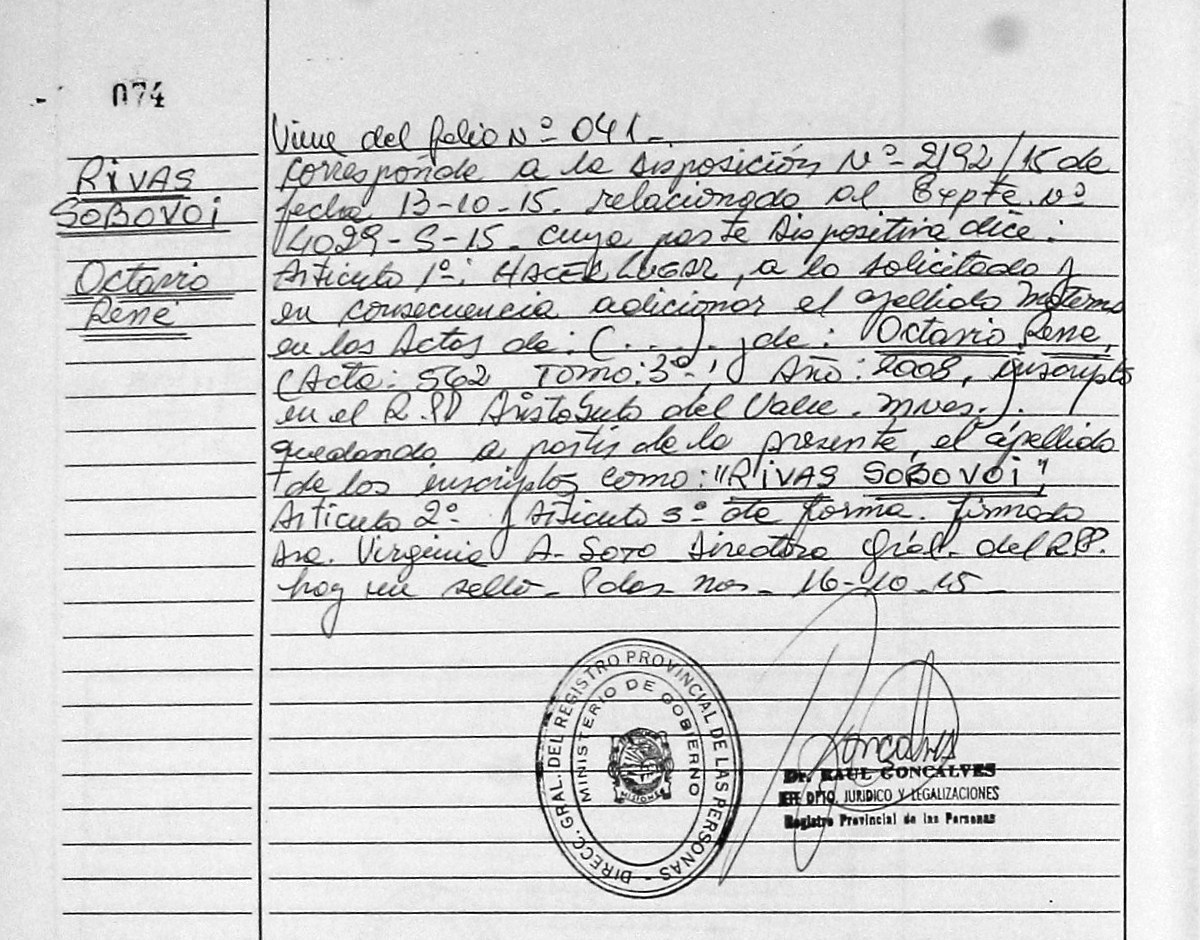 074
RIVAS
SOBOVOI
Octavio
René
Viene del folio Nº 041.-
Corresponde a la Disposición Nº 2192/15 de
fecha 13-10-15. relacionado al Expte. nº
4029-S-15. cuya parte Dispositiva dice:
Artículo 1º: HACER LUGAR, a lo solicitado y
en consecuencia adicionar el apellido materno
en las Actas de: (....). y de: Octavio René,
(Acta: 562, Tomo: 3º-, Año: 2008, inscripto
en el R.P.P Aristóbulo del Valle. Mnes.).
quedando a partir de la presente, el apellido
de los inscriptos como: "RIVAS SOBOVOI",
Artículo 2º y Artículo 3º de forma. firmado
Dra. Virginia A. Soto Directora Gral. del R.P.P.
hay un sello - Pdas - Mnes - 16-10-15
DIRECC. GRAL. DEL REGISTRO PROVINCIAL DE LAS PERSONAS -
MINISTERIO DE GOBIERNO
MISIONES
Goncalves
Dr. RAUL GONCALVES
JEFE DPTO. JURIDICO Y LEGALIZACIONES
Registro Provincial de las Personas